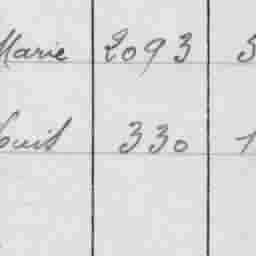 Marie 2093 5
Louis 330 1